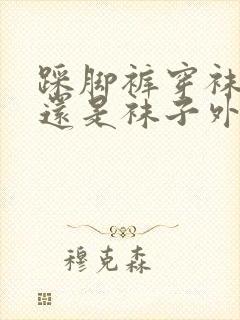 踩脚裤穿袜
還是袜子外
穆克森